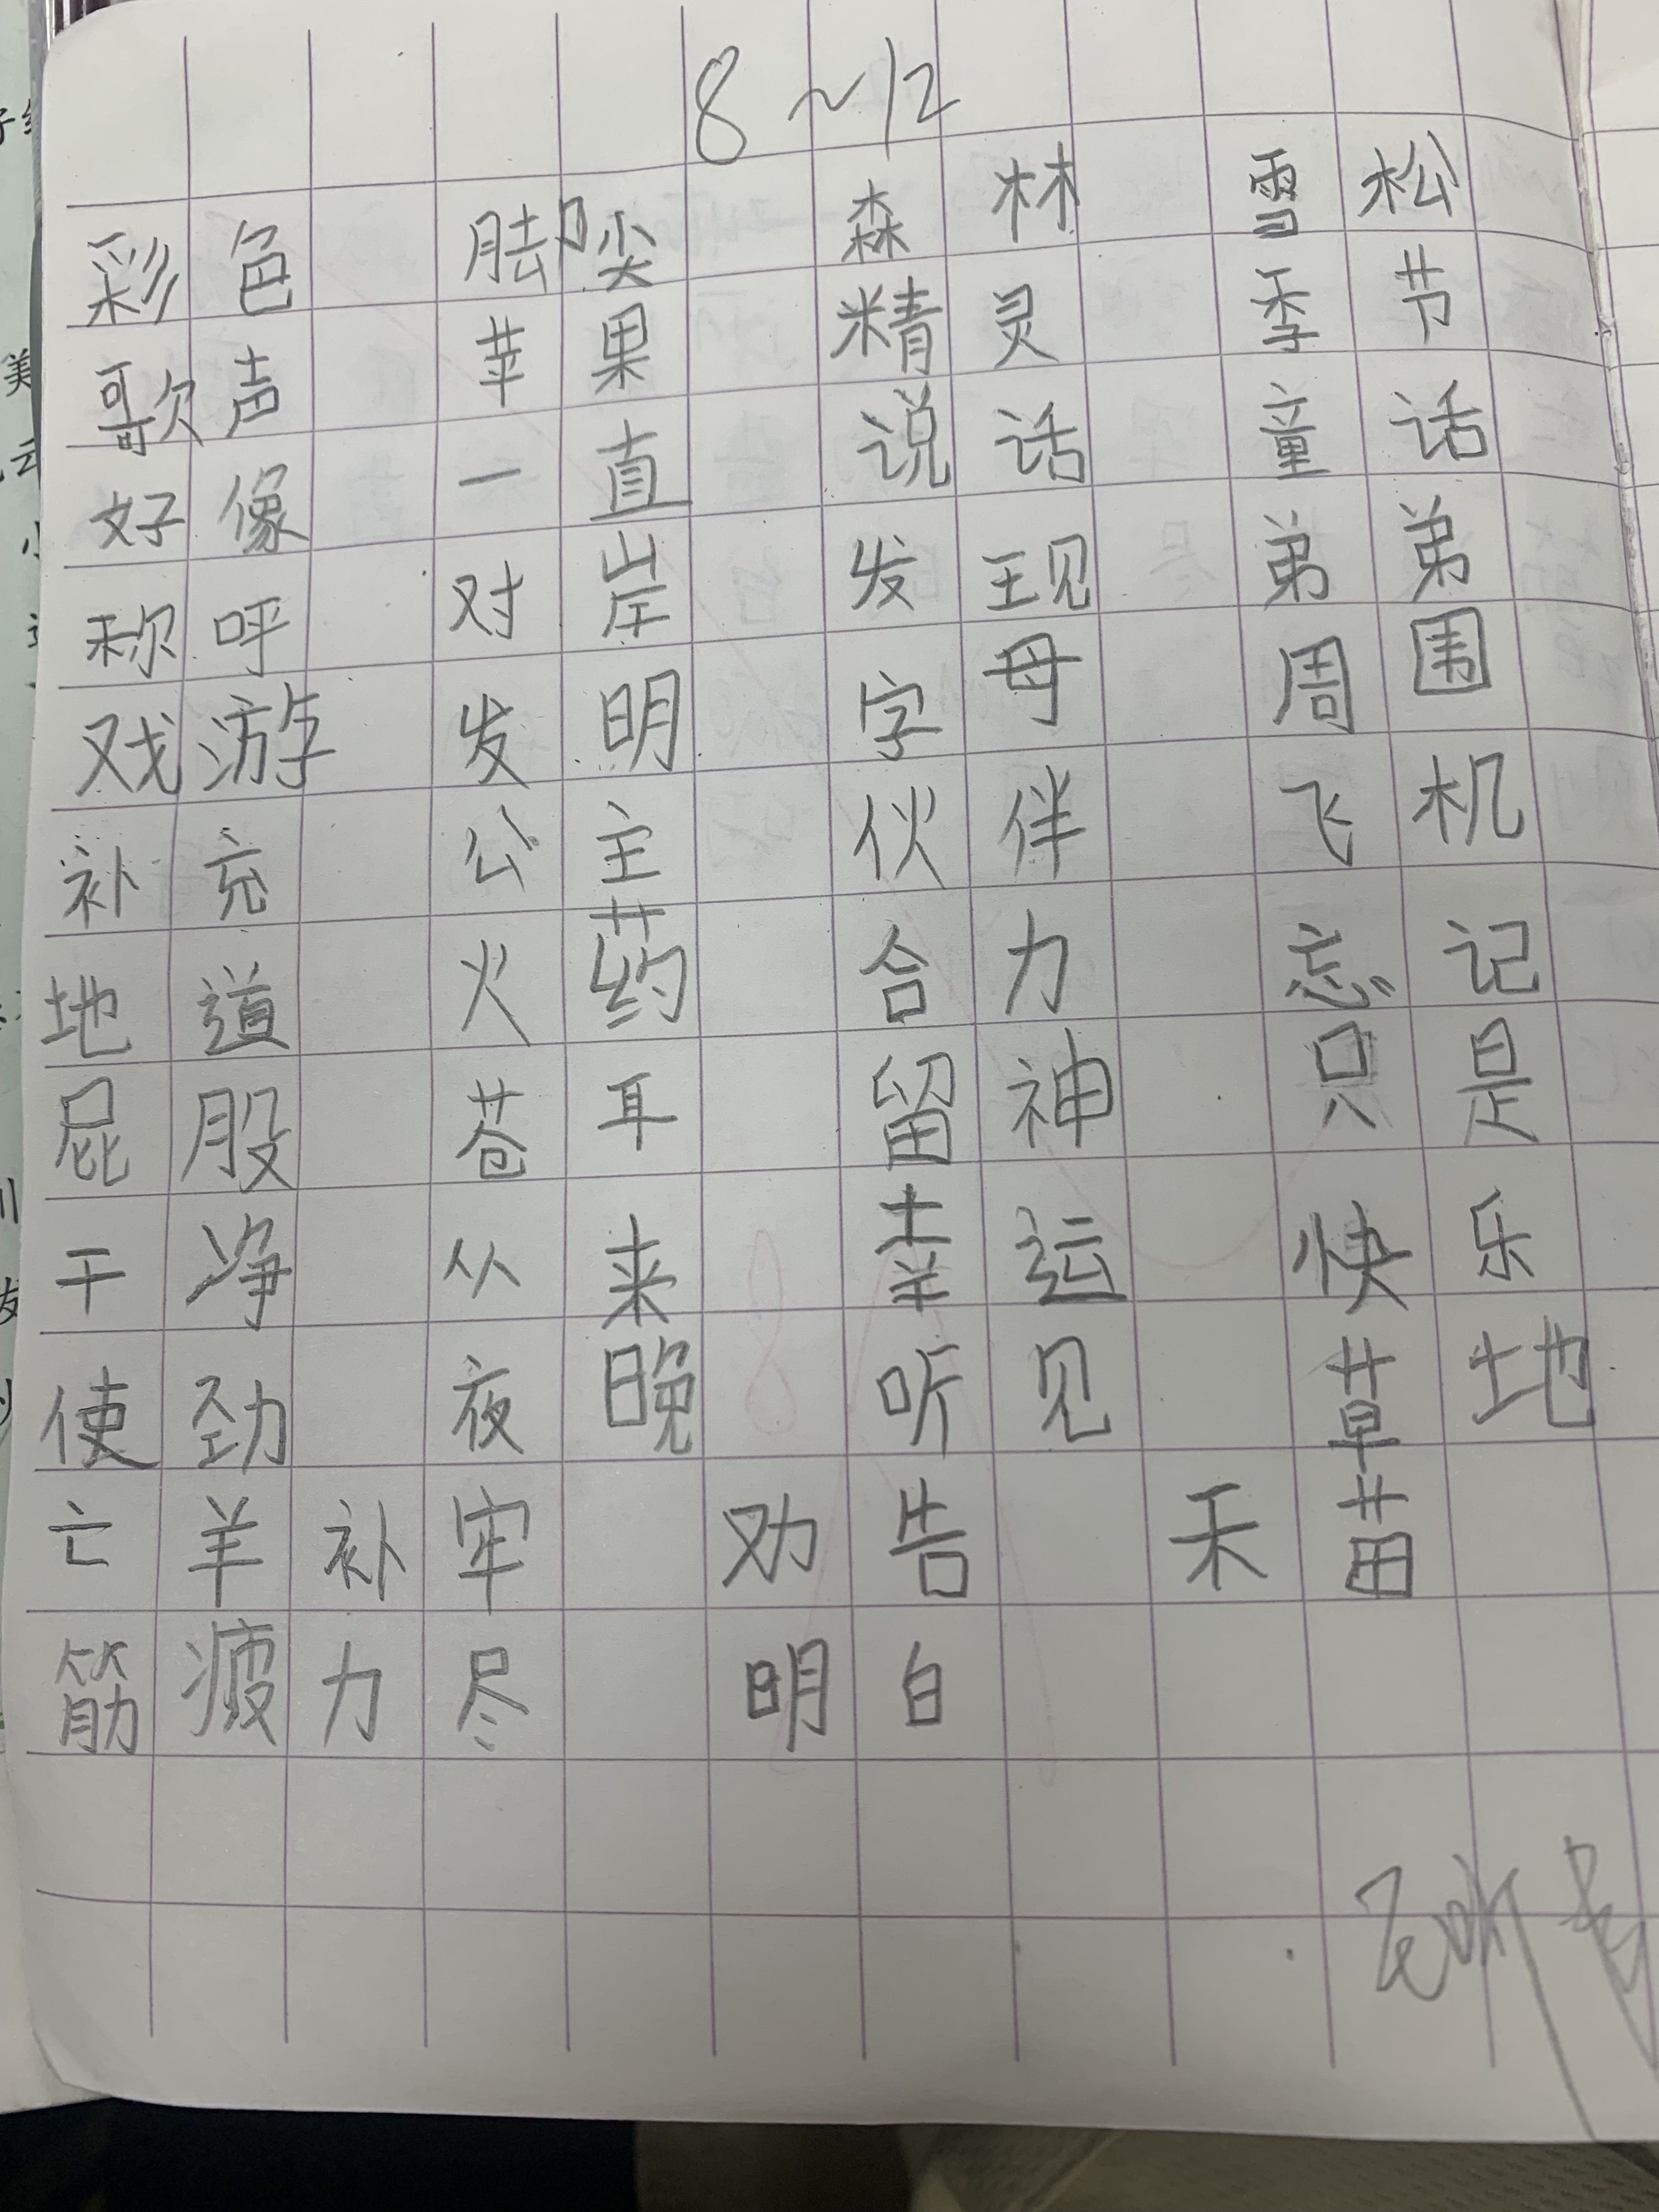 8~12
彩色 脚尖 森林 雪松
歌声 苹果 精灵 季节
好像 一直 说话 童话
称呼 对岸 发现 弟弟
戏游 发明 字母 周围
补充 公主 伙伴 飞机
地道 火药 合力 忘记
屁股 苍耳 留神 只是
干净 从来 幸运 快乐
使劲 夜晚 听见 草地
亡羊补牢 劝告 禾苗
筋疲力尽 明白